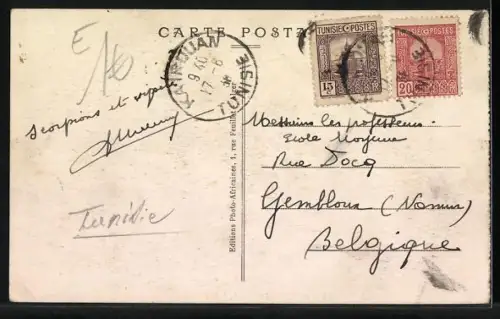 CARTE POSTA
E 10
KAIROUAN
9 40
17 - 6
TUNISIE
TUNISIE POSTES
15
TUNISIE POSTES
20
Scorpions et
Tunisie
Editions Photo-Africaines, 1, rue Feuillet, Alger
Messieurs les professeurs
Ecole Moyenne
Rue Docq
Gembloux (Namur)
Belgique